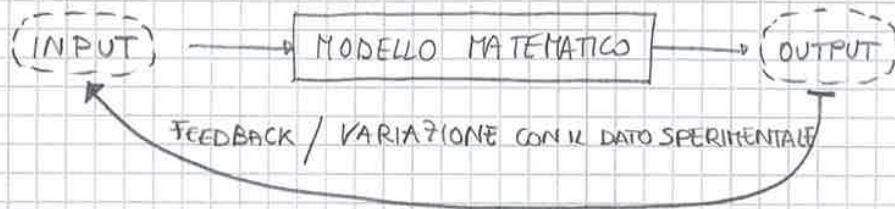 INPUT MODELLO MATEMATICO OUTPUT
FEEDBACK / VARIAZIONE CON IL DATO SPERIMENTALE